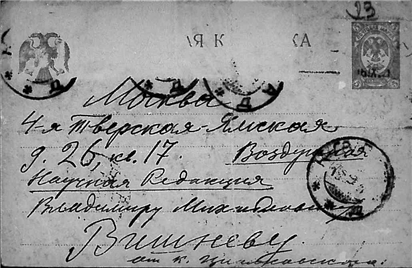 23
Москва
4-я Тверская-Ямская
д. 26, кв. 17.
Научная Редакция
Владимиру Михайловичу
Вишневу
от К. Циолковского